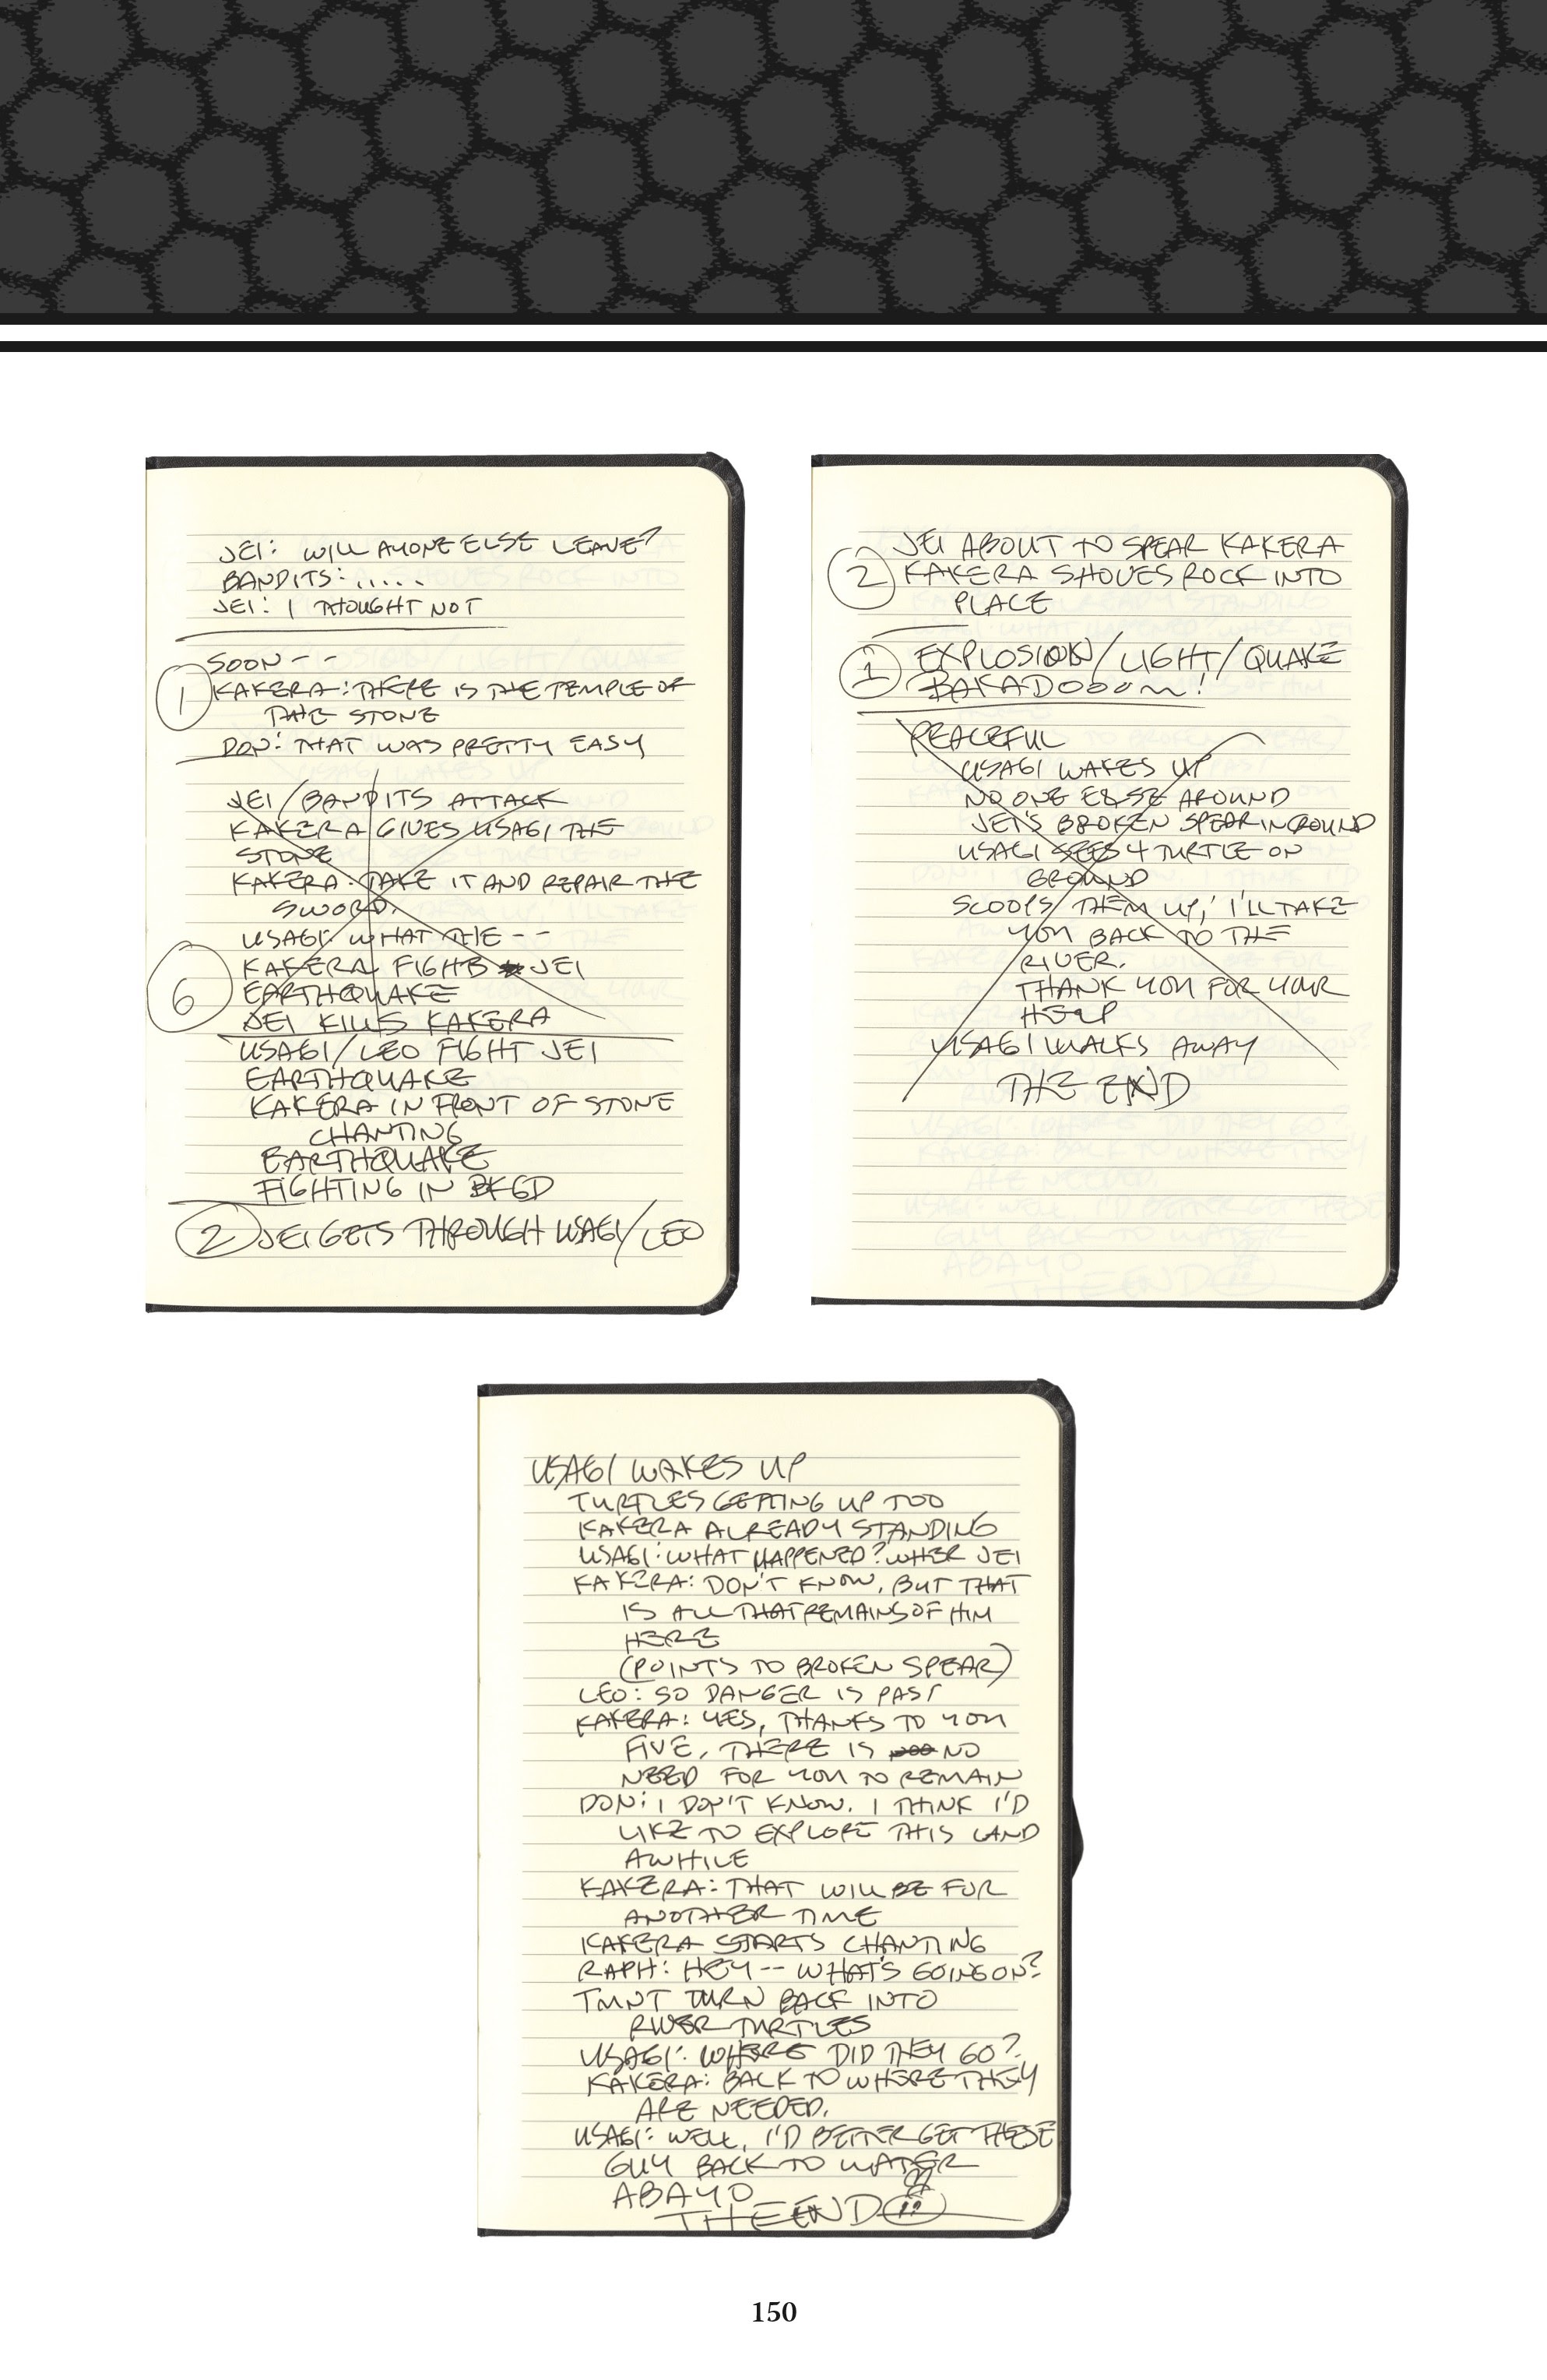 JEI: WILL AYONE ELSE LEAVE?
BANDITS: .....
JEI: I THOUGHT NOT
SOON --
1 KAKERA: THERE IS THE TEMPLE OF
THE STONE
DON: THAT WAS PRETTY EASY
JEI/BANDITS ATTACK
KAKERA GIVES USAGI THE
STONE
KAKERA: TAKE IT AND REPAIR THE
SWORD.
USAGI: WHAT THE --
KAKERA FIGHTS JEI
6 EARTHQUAKE
JEI KILLS KAKERA
USAGI/LEO FIGHT JEI
EARTHQUAKE
KAKERA IN FRONT OF STONE
CHANTING
EARTHQUAKE
FIGHTING IN BKGD
2 JEI GETS THROUGH USAGI/LEO
JEI ABOUT TO SPEAR KAKERA
2 KAKERA SHOVES ROCK INTO
PLACE
1 EXPLOSION/LIGHT/QUAKE
BAKADOOOM!
PEACEFUL
USAGI WAKES UP
NO ONE ELSE AROUND
JEI'S BROKEN SPEAR IN GROUND
USAGI SEES 4 TURTLE ON
GROUND
SCOOPS THEM UP, I'LL TAKE
YOU BACK TO THE
RIVER.
THANK YOU FOR YOUR
HELP
USAGI WALKS AWAY
THE END
USAGI WAKES UP
TURTLES GETTING UP TOO
KAKERA ALREADY STANDING
USAGI: WHAT HAPPENED? WHER JEI
KAKERA: DON'T KNOW, BUT THAT
IS ALL THAT REMAINS OF HIM
HERE
(POINTS TO BROKEN SPEAR)
LEO: SO DANGER IS PAST
KAKERA: YES, THANKS TO YOU
FIVE. THERE IS NO
NEED FOR YOU TO REMAIN
DON: I DON'T KNOW. I THINK I'D
LIKE TO EXPLORE THIS LAND
AWHILE
KAKERA: THAT WILL BE FOR
ANOTHER TIME
KAKERA STARTS CHANTING
RAPH: HEY -- WHAT'S GOING ON?
TMNT TURN BACK INTO
RIVER TURTLES
USAGI: WHERE DID THEY GO?
KAKERA: BACK TO WHERE THEY
ARE NEEDED.
USAGI: WELL, I'D BETTER GET THESE
GUY BACK TO WATER
ABAYO
THE END
150